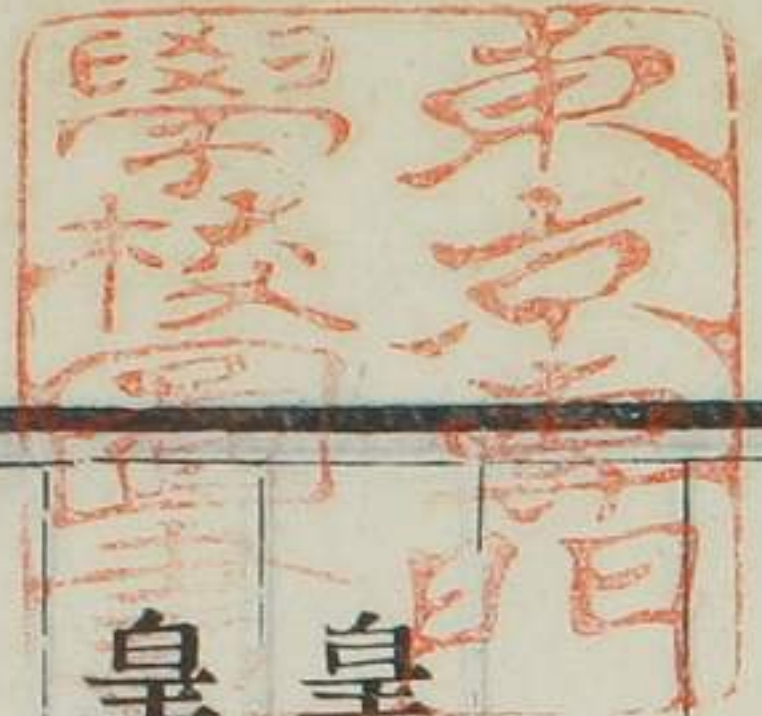 東京專門
學校圖書
皇
皇